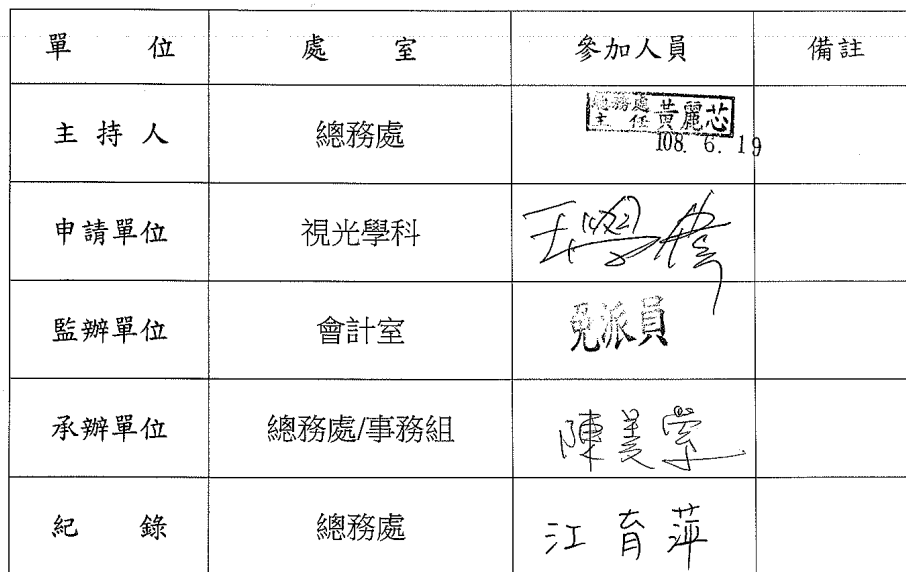 單 位 處 室 參加人員 備註
主 持 人 總務處 總務處主任 黃麗芯
108. 6. 19
申請單位 視光學科 王學偉
監辦單位 會計室 免派員
承辦單位 總務處/事務組 陳美
紀 錄 總務處 江育萍